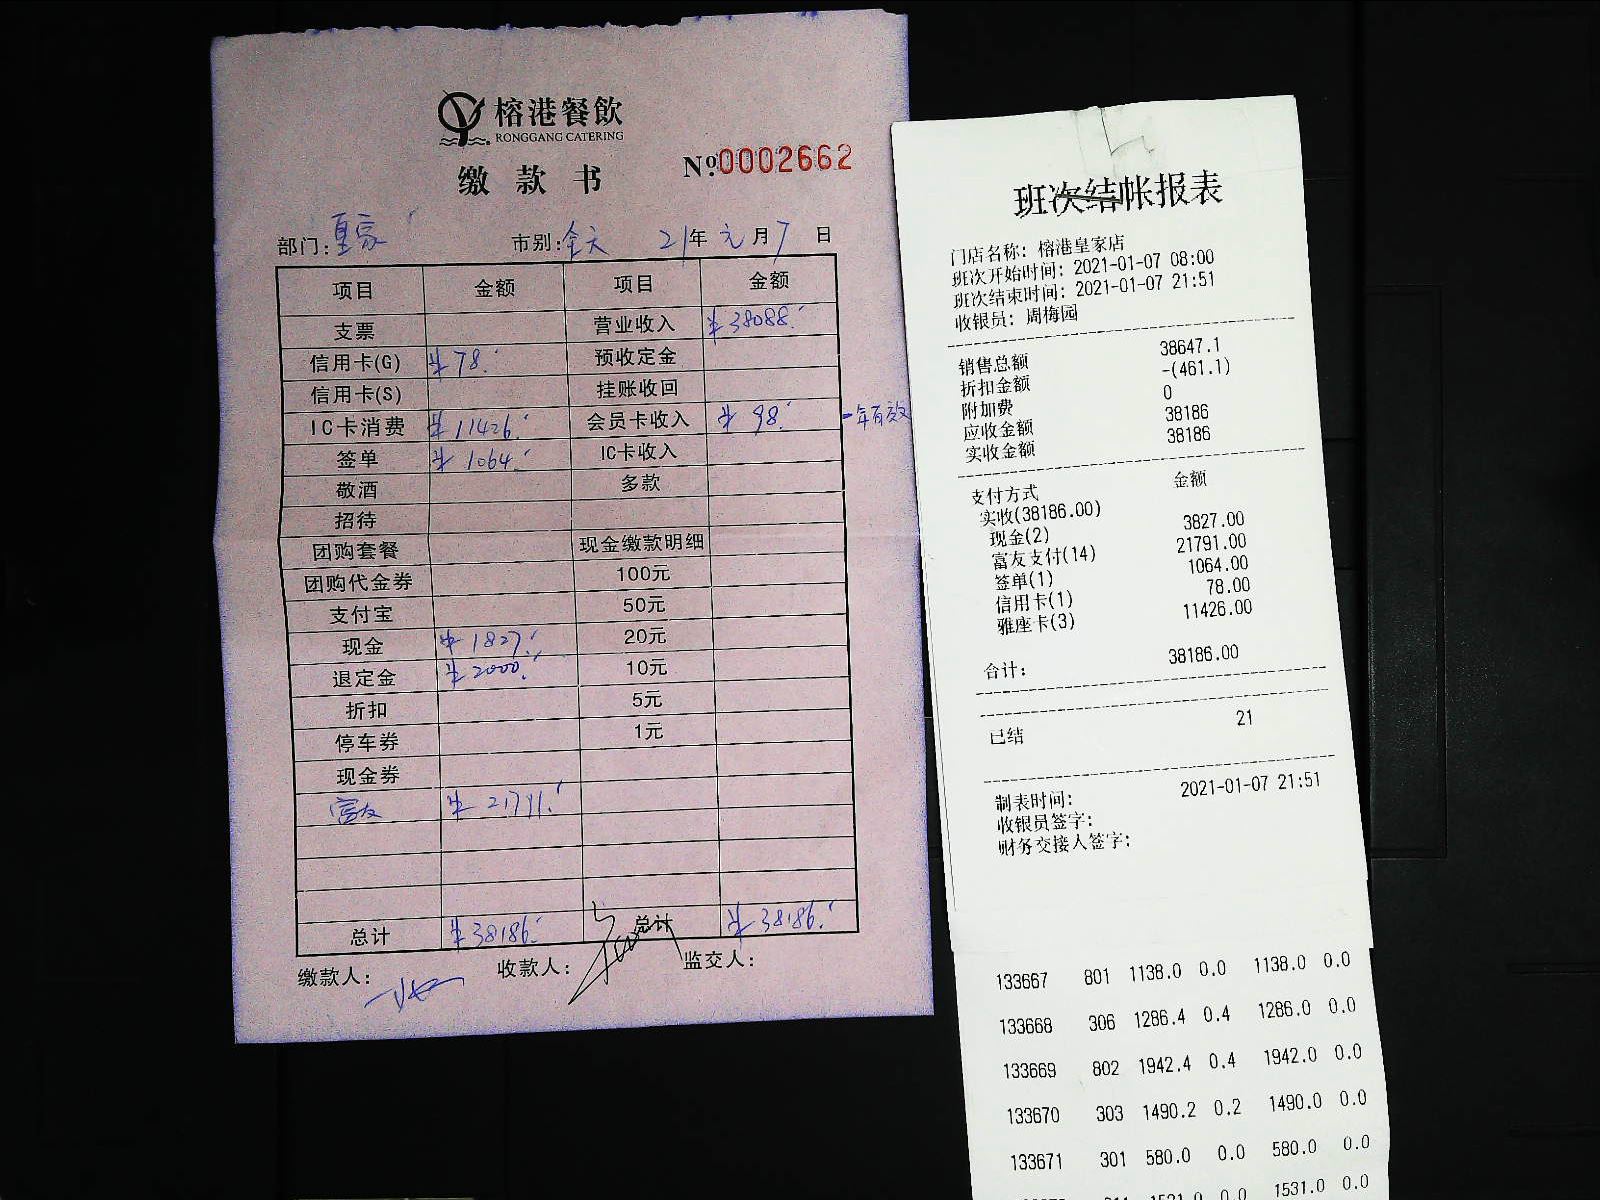 榕港餐飲
RONGGANG CATERING
缴款书
№0002662
部门: 皇家 市别: 全天 21年 元月 7 日
项目 金额 项目 金额
支票 营业收入 ¥38088.
信用卡(G) ¥78. 预收定金
信用卡(S) 挂账收回
IC卡消费 ¥11426. 会员卡收入 ¥98. 一年有效
签单 ¥1064. IC卡收入
敬酒 多款
招待
团购套餐 现金缴款明细
团购代金券 100元
支付宝 50元
现金 ¥1827. 20元
退定金 ¥2000. 10元
折扣 5元
停车券 1元
现金券
富友 ¥21791.
总计 ¥38186. 总计 ¥38186.
缴款人: 收款人: 监交人:
班次结帐报表
门店名称: 榕港皇家店
班次开始时间: 2021-01-07 08:00
班次结束时间: 2021-01-07 21:51
收银员: 周梅园
销售总额 38647.1
折扣金额 -(461.1)
附加费 0
应收金额 38186
实收金额 38186
支付方式 金额
实收(38186.00)
现金(2) 3827.00
富友支付(14) 21791.00
签单(1) 1064.00
信用卡(1) 78.00
雅座卡(3) 11426.00
合计: 38186.00
已结 21
制表时间: 2021-01-07 21:51
收银员签字:
财务交接人签字:
133667 801 1138.0 0.0 1138.0 0.0
133668 306 1286.4 0.4 1286.0 0.0
133669 802 1942.4 0.4 1942.0 0.0
133670 303 1490.2 0.2 1490.0 0.0
133671 301 580.0 0.0 580.0 0.0
1531.0 0.0